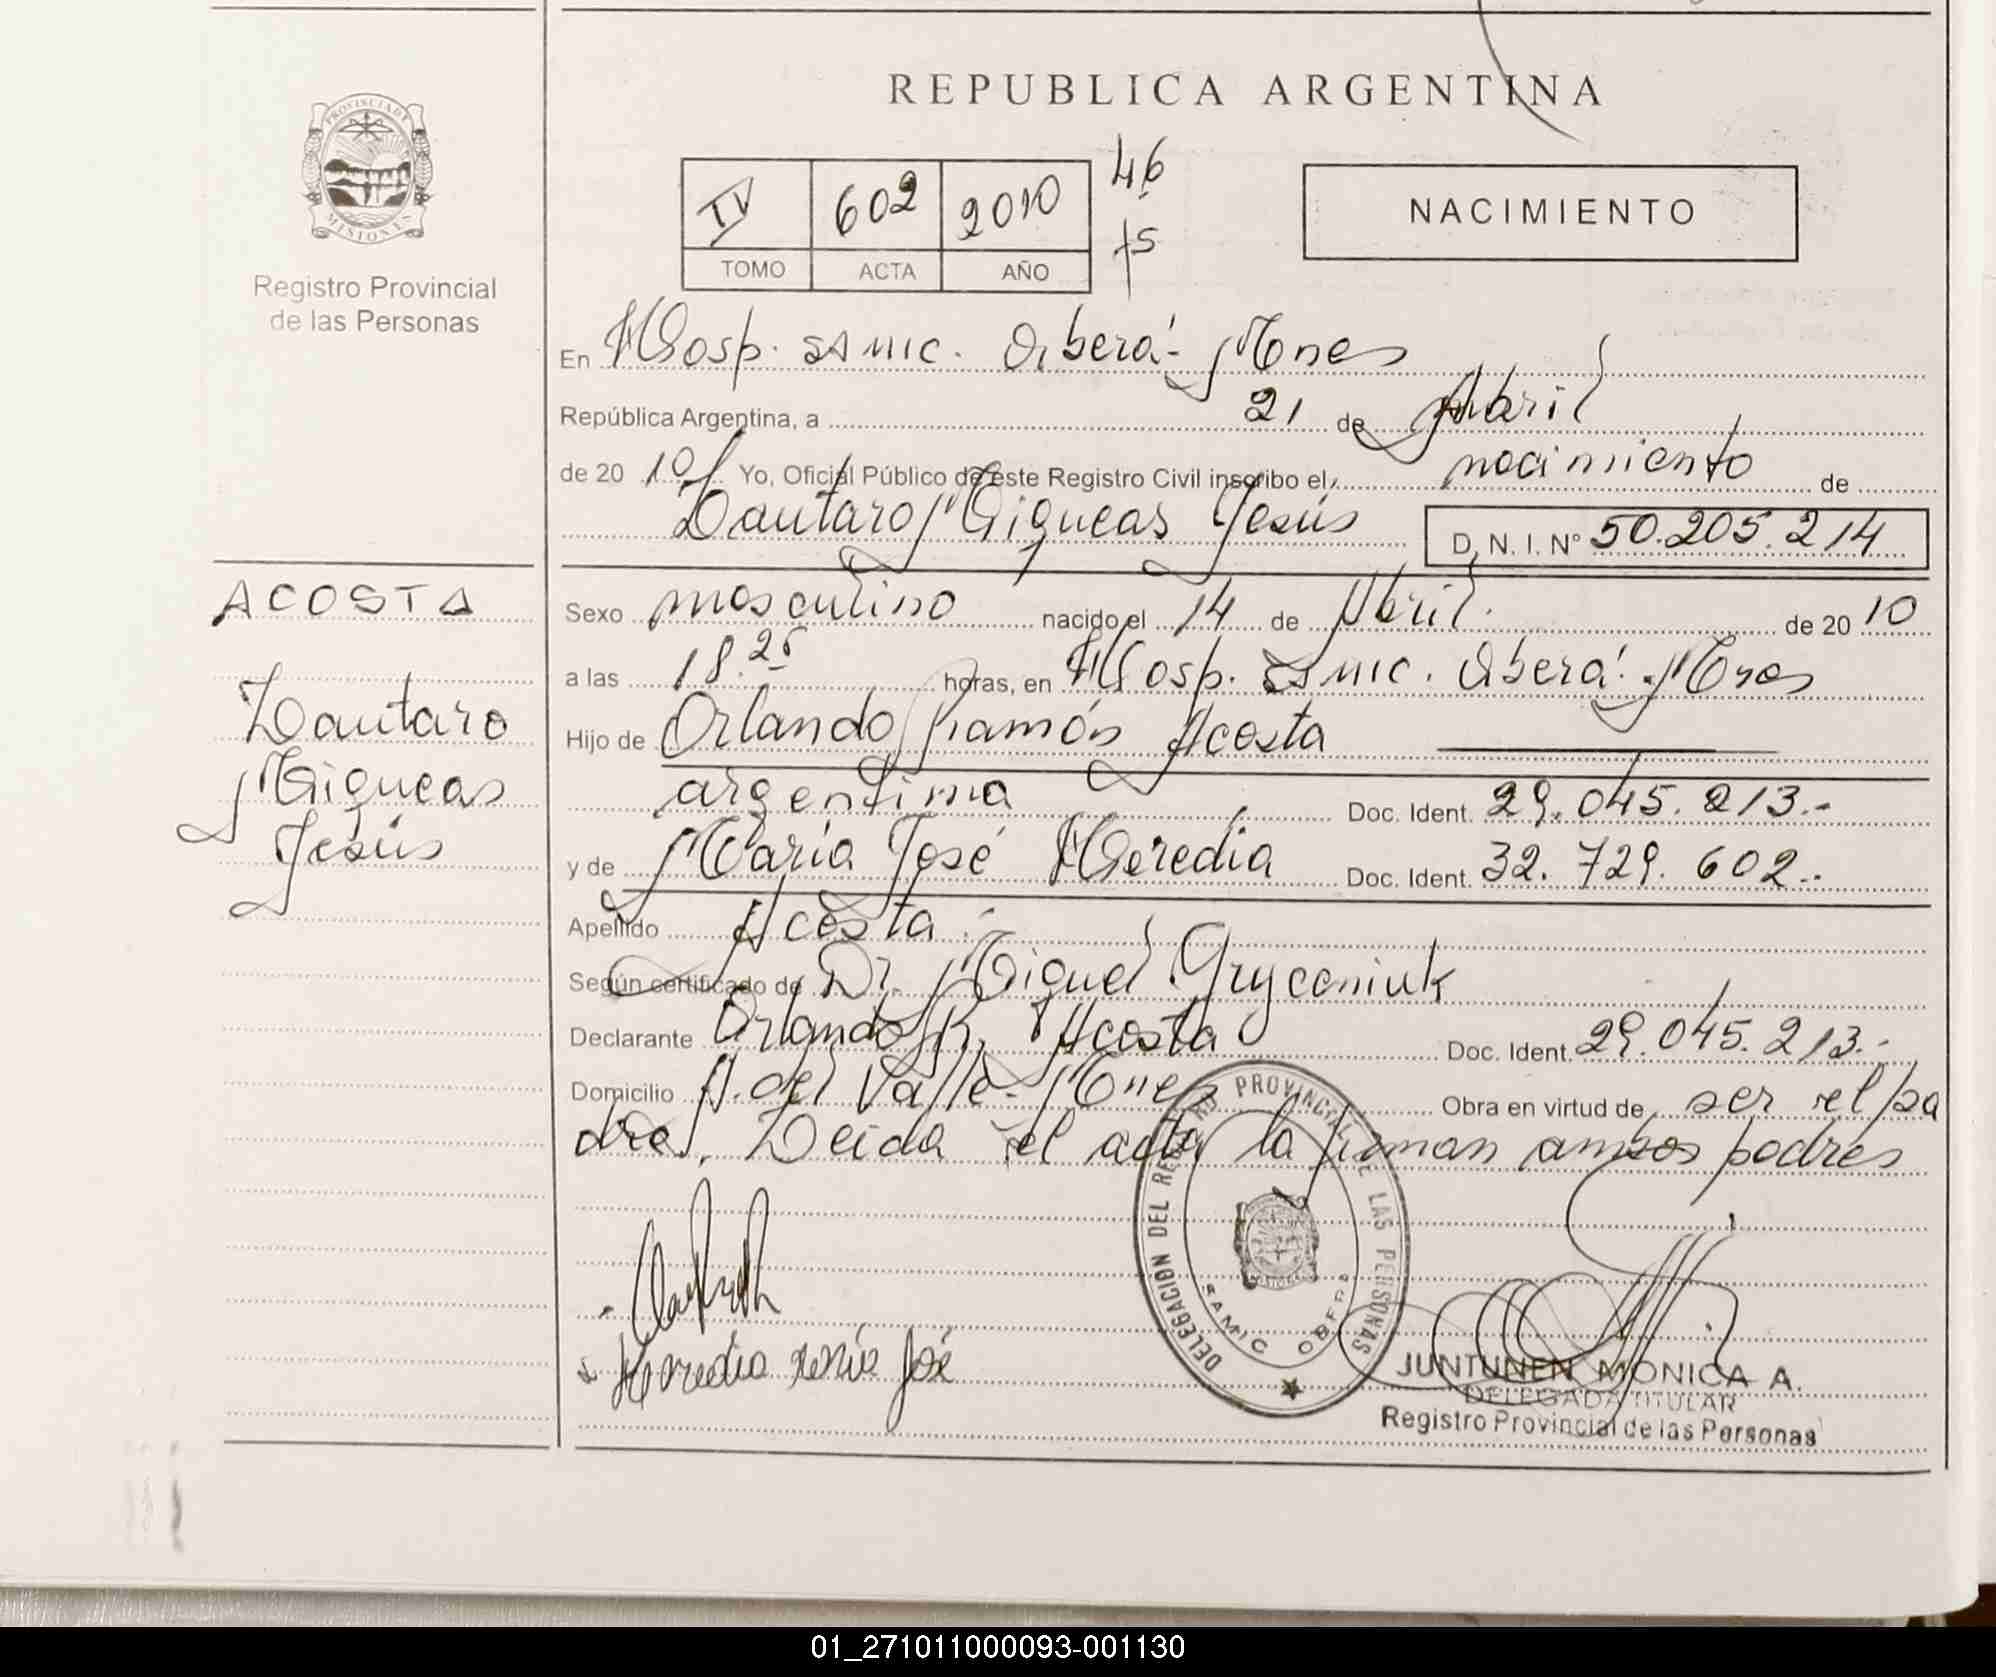 REPUBLICA ARGENTINA
PROVINCIA DE MISIONES
Registro Provincial
de las Personas
IV 602 2010
TOMO ACTA AÑO
46
NACIMIENTO
En Hosp. SAMIC. Oberá - Mnes
República Argentina, a 21 de Abril
de 20 10 Yo, Oficial Público de este Registro Civil inscribo el nacimiento de
Lautaro Miqueas Jesús D. N. I. Nº 50.205.214
ACOSTA
Lautaro
Miqueas
Jesús
Sexo masculino nacido el 14 de Abril. de 20 10
a las 18.25 horas, en Hosp. SAMIC. Oberá. Mnes
Hijo de Orlando Ramón Acosta
argentina Doc. Ident. 29.045.213.-
y de María José Heredia Doc. Ident. 32.729.602.-
Apellido Acosta.-
Según certificado de Dr. Miguel Gryceniuk
Declarante Orlando R. Acosta Doc. Ident. 29.045.213.-
Domicilio A. del Valle - Mnes Obra en virtud de ser el pa
dre. Leida el acta la firman ambos padres
Heredia María José
DELEGACION DEL REGISTRO PROVINCIAL DE LAS PERSONAS
SAMIC OBERA
JUNTUNEN MONICA A.
DELEGADA TITULAR
Registro Provincial de las Personas
01_271011000093-001130